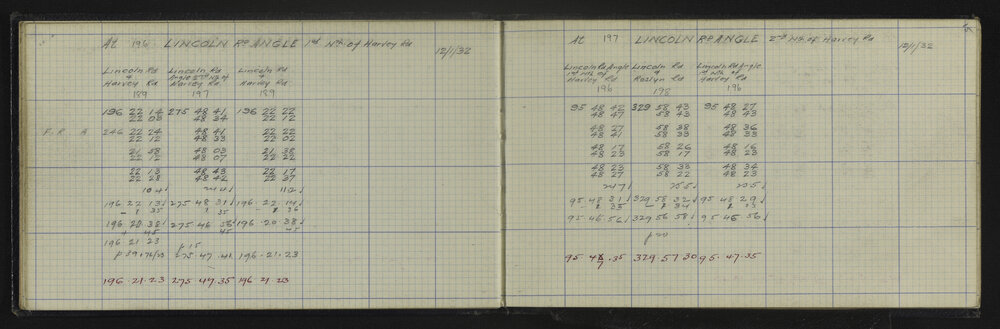 At 196 LINCOLN RD ANGLE 1st Nth of Harvey Rd 12/1/32
Lincoln Rd Lincoln Rd Lincoln Rd
+ Angle 2nd Nth of +
Harvey Rd Harvey Rd Harvey Rd
189 197 189
196 22 14 275 48 41 196 22 22
22 08 48 34 22 12
F. R. 246 22 24 48 41 22 22
22 12 48 33 22 02
21 58 48 03 21 38
22 12 48 07 22 22
22 13 48 43 22 17
22 28 48 42 22 37
104 244 112
196 22 13 275 48 31 196 22 14
1 35 1 35
196 20 38 275 46 56 196 20 38
45 45
196 21 23 p 15
p 59+76/23 275 47 41 196.21.23
196.21.23 275 47.35 196.21.23
At 197 LINCOLN RD ANGLE 2nd Nth of Harvey Rd 12/1/32
Lincoln Rd Angle Lincoln Rd Lincoln Rd Angle
1st Nth of + 1st Nth of
Harvey Rd Roslyn Rd Harvey Rd
196 198 196
95 48 42 329 58 43 95 48 27
48 47 58 43 48 43
48 27 58 38 48 36
48 41 58 33 48 33
48 17 58 26 48 16
48 23 58 17 48 23
48 23 58 33 48 34
48 27 58 22 48 23
247 255 235
95 48 31 329 58 32 95 48 29
1 35 1 34 1 33
95 46 56 329 56 58 95 46 56
p 20
95.47.35 329.57.30 95.47.35